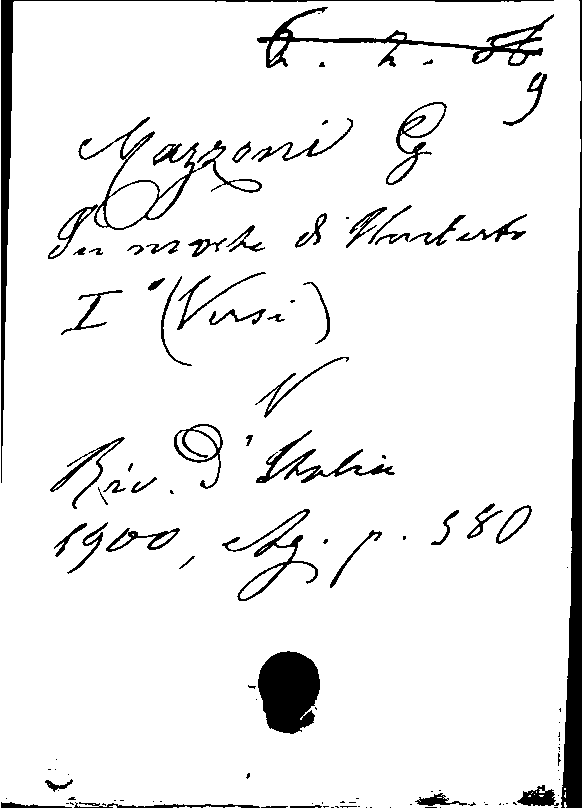 6. 2.
9
Mazzoni G
In morte di Umberto
I° (Versi)
V
Riv. D'Italia
1900, Ag. p. 580